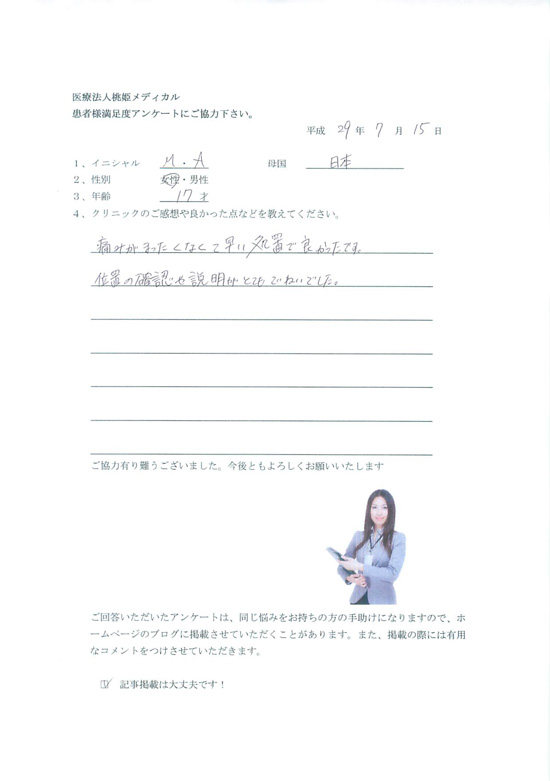 医療法人桃姫メディカル
患者様満足度アンケートにご協力下さい。
平成 29年 7月 15日
1、イニシャル M.A 母国 日本
2、性別 女性・男性
3、年齢 17才
4、クリニックのご感想や良かった点などを教えてください。
痛みがまったくなくて早い処置で良かったです。
位置の確認や説明がとてもていねいでした。
ご協力有り難うございました。今後ともよろしくお願いいたします
ご回答いただいたアンケートは、同じ悩みをお持ちの方の手助けになりますので、ホ
ームページのブログに掲載させていただくことがあります。また、掲載の際には有用
なコメントをつけさせていただきます。
☑ 記事掲載は大丈夫です！